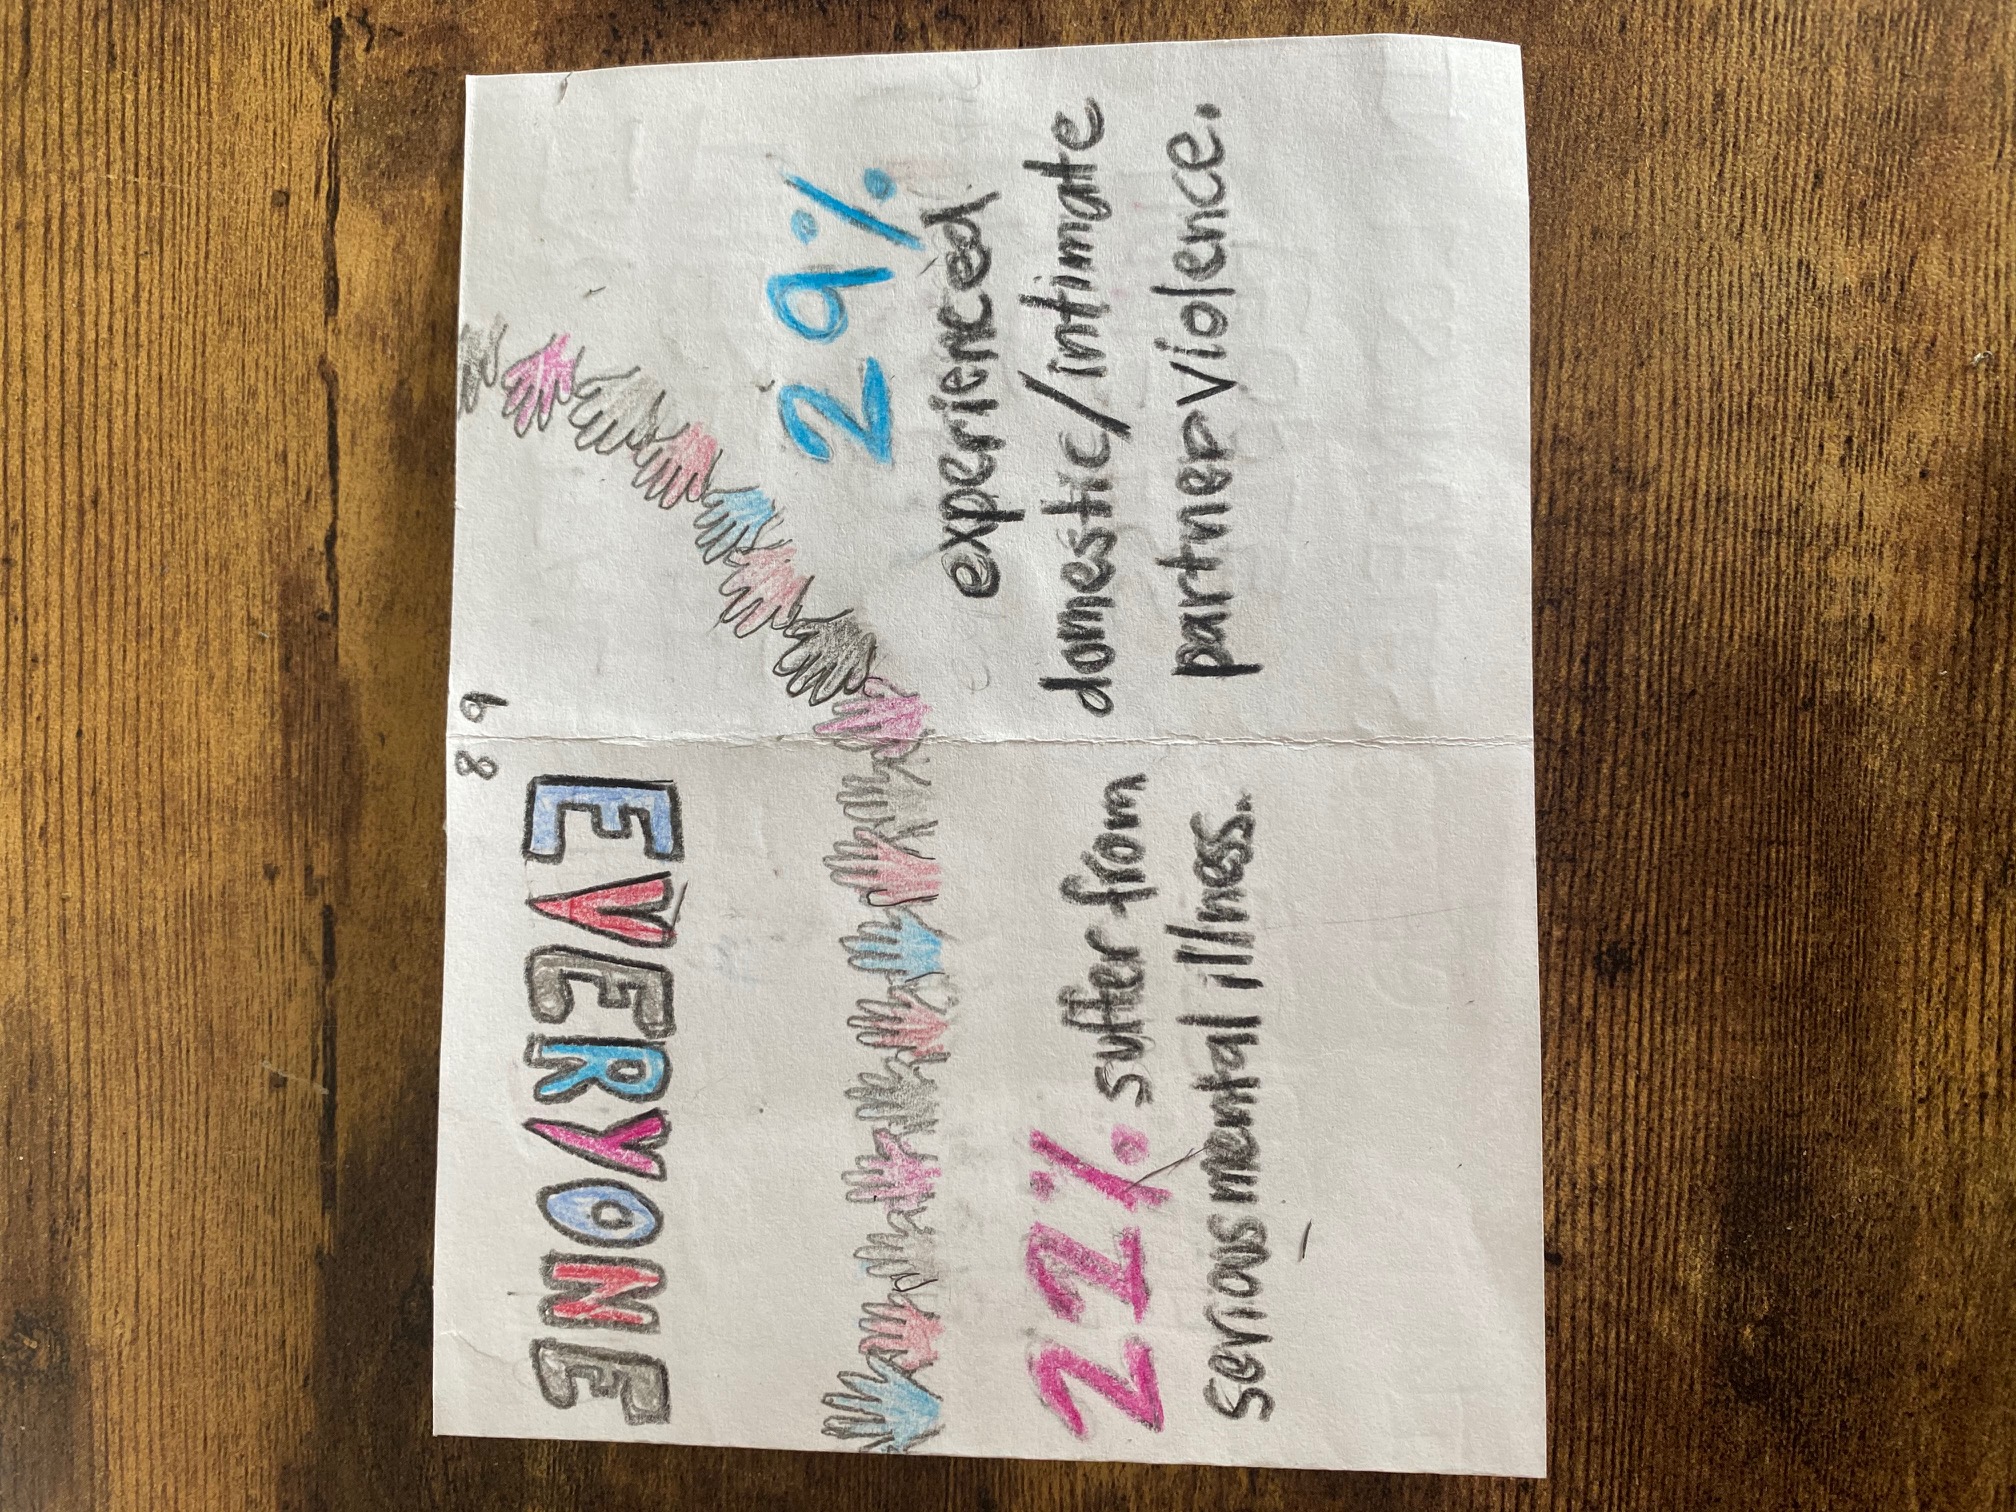 8
EVERYONE
22% suffer from
serious mental illness.
9
29%
experienced
domestic/intimate
partner violence.